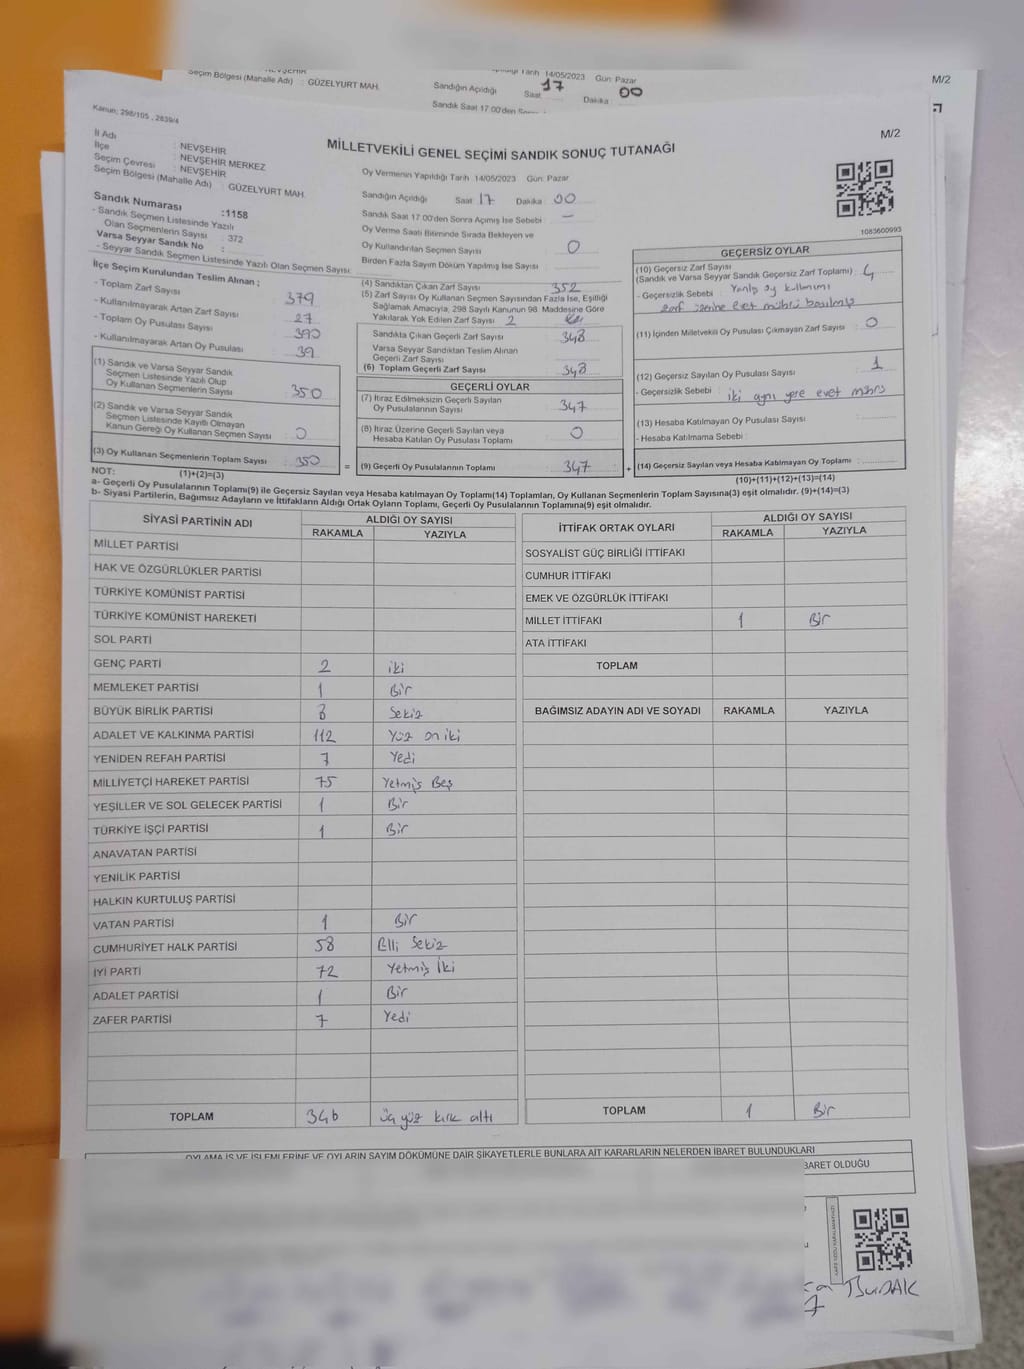 Seçim Bölgesi (Mahalle Adı) : GÜZELYURT MAH.
14/05/2023 Gün: Pazar
Sandığın Açıldığı Saat 17 Dakika 00
M/2
Kanun: 298/105 , 2839/4
M/2
MİLLETVEKİLİ GENEL SEÇİMİ SANDIK SONUÇ TUTANAĞI
İl Adı : NEVŞEHİR
İlçe : NEVŞEHİR MERKEZ
Seçim Çevresi : NEVŞEHİR
Seçim Bölgesi (Mahalle Adı) : GÜZELYURT MAH.
Sandık Numarası :1158
- Sandık Seçmen Listesinde Yazılı
Olan Seçmenlerin Sayısı : 372
Varsa Seyyar Sandık No :
- Seyyar Sandık Seçmen Listesinde Yazılı Olan Seçmen Sayısı:
İlçe Seçim Kurulundan Teslim Alınan ;
- Toplam Zarf Sayısı 379
- Kullanılmayarak Artan Zarf Sayısı 27
- Toplam Oy Pusulası Sayısı 390
- Kullanılmayarak Artan Oy Pusulası 39
(1) Sandık ve Varsa Seyyar Sandık
Seçmen Listesinde Yazılı Olup
Oy Kullanan Seçmenlerin Sayısı 350
(2) Sandık ve Varsa Seyyar Sandık
Seçmen Listesinde Kayıtlı Olmayan
Kanun Gereği Oy Kullanan Seçmen Sayısı 0
(3) Oy Kullanan Seçmenlerin Toplam Sayısı 350
(1)+(2)=(3)
Oy Vermenin Yapıldığı Tarih 14/05/2023 Gün: Pazar
Sandığın Açıldığı Saat 17 Dakika 00
Sandık Saat 17:00'den Sonra Açımış İse Sebebi -
Oy Verme Saati Bitiminde Sırada Bekleyen ve
Oy Kullandırılan Seçmen Sayısı 0
Birden Fazla Sayım Döküm Yapılmış İse Sayısı
(4) Sandıktan Çıkan Zarf Sayısı 352
(5) Zarf Sayısı Oy Kullanan Seçmen Sayısından Fazla İse, Eşitliği
Sağlamak Amacıyla, 298 Sayılı Kanunun 98. Maddesine Göre
Yakılarak Yok Edilen Zarf Sayısı 2
Sandıkta Çıkan Geçerli Zarf Sayısı 348
Varsa Seyyar Sandıktan Teslim Alınan
Geçerli Zarf Sayısı
(6) Toplam Geçerli Zarf Sayısı 348
GEÇERLİ OYLAR
(7) İtiraz Edilmeksizin Geçerli Sayılan
Oy Pusulalarının Sayısı 347
(8) İtiraz Üzerine Geçerli Sayılan veya
Hesaba Katılan Oy Pusulası Toplamı 0
= (9) Geçerli Oy Pusulalarının Toplamı 347
1083600993
GEÇERSİZ OYLAR
(10) Geçersiz Zarf Sayısı
(Sandık ve Varsa Seyyar Sandık Geçersiz Zarf Toplamı) 4
- Geçersizlik Sebebi Yanlış oy kullanımı
zarf üzerine evet mührü basılmış
(11) İçinden Milletvekili Oy Pusulası Çıkmayan Zarf Sayısı 0
(12) Geçersiz Sayılan Oy Pusulası Sayısı 1
- Geçersizlik Sebebi iki ayrı yere evet mührü
(13) Hesaba Katılmayan Oy Pusulası Sayısı
- Hesaba Katılmama Sebebi
+ (14) Geçersiz Sayılan veya Hesaba Katılmayan Oy Toplamı
(10)+(11)+(12)+(13)=(14)
NOT:
a- Geçerli Oy Pusulalarının Toplamı(9) ile Geçersiz Sayılan veya Hesaba katılmayan Oy Toplamı(14) Toplamları, Oy Kullanan Seçmenlerin Toplam Sayısına(3) eşit olmalıdır. (9)+(14)=(3)
b- Siyasi Partilerin, Bağımsız Adayların ve İttifakların Aldığı Ortak Oyların Toplamı, Geçerli Oy Pusulalarının Toplamına(9) eşit olmalıdır.
SİYASİ PARTİNİN ADI ALDIĞI OY SAYISI
RAKAMLA YAZIYLA
MİLLET PARTİSİ
HAK VE ÖZGÜRLÜKLER PARTİSİ
TÜRKİYE KOMÜNİST PARTİSİ
TÜRKİYE KOMÜNİST HAREKETİ
SOL PARTİ
GENÇ PARTİ 2 iki
MEMLEKET PARTİSİ 1 Bir
BÜYÜK BİRLİK PARTİSİ 8 Sekiz
ADALET VE KALKINMA PARTİSİ 112 Yüz on iki
YENİDEN REFAH PARTİSİ 7 Yedi
MİLLİYETÇİ HAREKET PARTİSİ 75 Yetmiş Beş
YEŞİLLER VE SOL GELECEK PARTİSİ 1 Bir
TÜRKİYE İŞÇİ PARTİSİ 1 Bir
ANAVATAN PARTİSİ
YENİLİK PARTİSİ
HALKIN KURTULUŞ PARTİSİ
VATAN PARTİSİ 1 Bir
CUMHURİYET HALK PARTİSİ 58 Elli Sekiz
İYİ PARTİ 72 Yetmiş İki
ADALET PARTİSİ 1 Bir
ZAFER PARTİSİ 7 Yedi
TOPLAM 346 üç yüz kırk altı
İTTİFAK ORTAK OYLARI ALDIĞI OY SAYISI
RAKAMLA YAZIYLA
SOSYALİST GÜÇ BİRLİĞİ İTTİFAKI
CUMHUR İTTİFAKI
EMEK VE ÖZGÜRLÜK İTTİFAKI
MİLLET İTTİFAKI 1 Bir
ATA İTTİFAKI
TOPLAM
BAĞIMSIZ ADAYIN ADI VE SOYADI RAKAMLA YAZIYLA
TOPLAM 1 Bir
OYLAMA İŞ VE İŞLEMLERİNE VE OYLARIN SAYIM DÖKÜMÜNE DAİR ŞİKAYETLERLE BUNLARA AİT KARARLARIN NELERDEN İBARET BULUNDUKLARI
BARET OLDUĞU
BUDAK
7